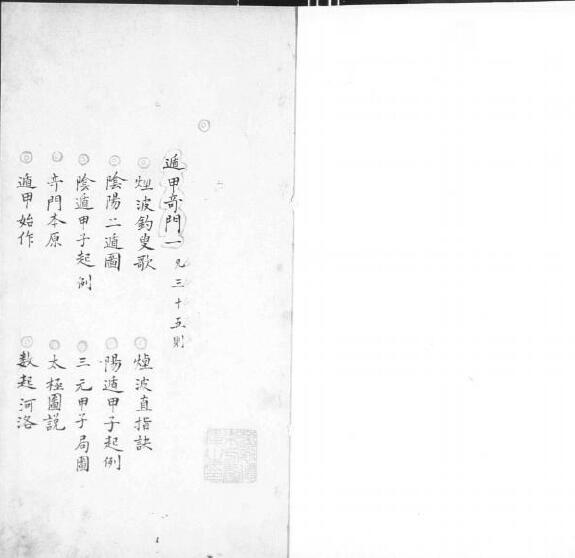 遁甲奇門一 凡三十五則
煙波釣叟歌 煙波直指訣
陰陽二遁圖 陽遁甲子起例
陰遁甲子起例 三元甲子局圖
奇門本原 太極圖説
遁甲始作 数起河洛